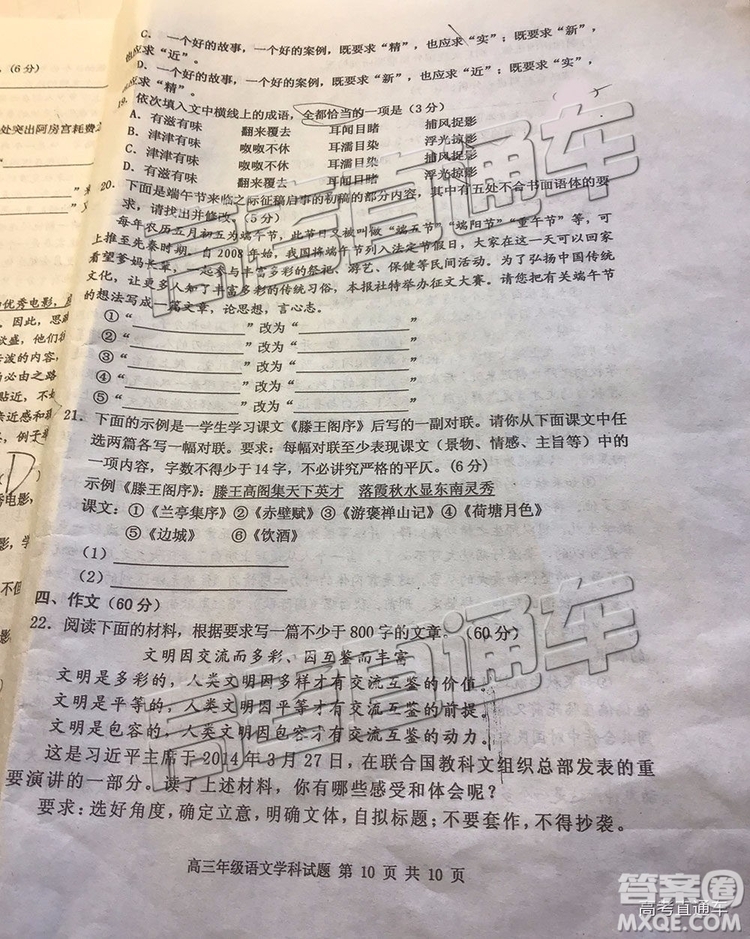 C. 一个好的故事，一个好的案例，既要求“精”，也应求“实”；既要求“新”，
也应求“近”。
D. 一个好的故事，一个好的案例，既要求“新”，也应求“近”；既要求“实”，
也应求“精”。
，(6分)
19. 依次填入文中横线上的成语，全都恰当的一项是(3分)
A. 有滋有味 翻来覆去 耳闻目睹 捕风捉影
B. 津津有味 呶呶不休 耳濡目染 浮光掠影
C. 津津有味 呶呶不休 耳濡目染 捕风捉影
D. 有滋有味 翻来覆去 耳闻目睹 浮光掠影
处突出阿房宫耗费
20. 下面是端午节来临之际征稿启事的初稿的部分内容，其中有五处不合书面语体的要
求，请找出并修改。(5分)
每年农历五月初五为端午节，此节日又被叫做“端五节”“端阳节”“重午节”等，可
上推至先秦时期。自2008年始，我国将端午节列入法定节假日，大家在这一天可以回家
看望爹妈长辈，一起参与丰富多彩的祭祀、游艺、保健等民间活动。为了弘扬中国传统
文化，让更多人知了丰富多彩的传统习俗，本报社特举办征文大赛。请您把有关端午节
的想法写成一篇文章，论思想，言心志。
①“ ”改为“ ”
②“ ”改为“ ”
③“ ”改为“ ”
④“ ”改为“ ”
⑤“ ”改为“ ”
21. 下面的示例是一学生学习课文《滕王阁序》后写的一副对联。请你从下面课文中任
选两篇各写一幅对联。要求：每幅对联至少表现课文(景物、情感、主旨等)中的
一项内容，字数不得少于14字，不必讲究严格的平仄。(6分)
示例《滕王阁序》：滕王高阁集天下英才 落霞秋水显东南灵秀
课文：①《兰亭集序》②《赤壁赋》③《游褒禅山记》④《荷塘月色》
⑤《边城》 ⑥《饮酒》
(1)
(2)
四、作文(60分)
22. 阅读下面的材料，根据要求写一篇不少于800字的文章。(60分)
文明因交流而多彩、因互鉴而丰富
文明是多彩的，人类文明因多样才有交流互鉴的价值。
文明是平等的，人类文明因平等才有交流互鉴的前提。
文明是包容的，人类文明因包容才有交流互鉴的动力。
这是习近平主席于2014年3月27日，在联合国教科文组织总部发表的重
要演讲的一部分。读了上述材料，你有哪些感受和体会呢？
要求：选好角度，确定立意，明确文体，自拟标题；不要套作，不得抄袭。
高三年级语文学科试题 第10页 共10页
高考直通车
高考直通车
答案圈
高考直通车
MXQE.COM